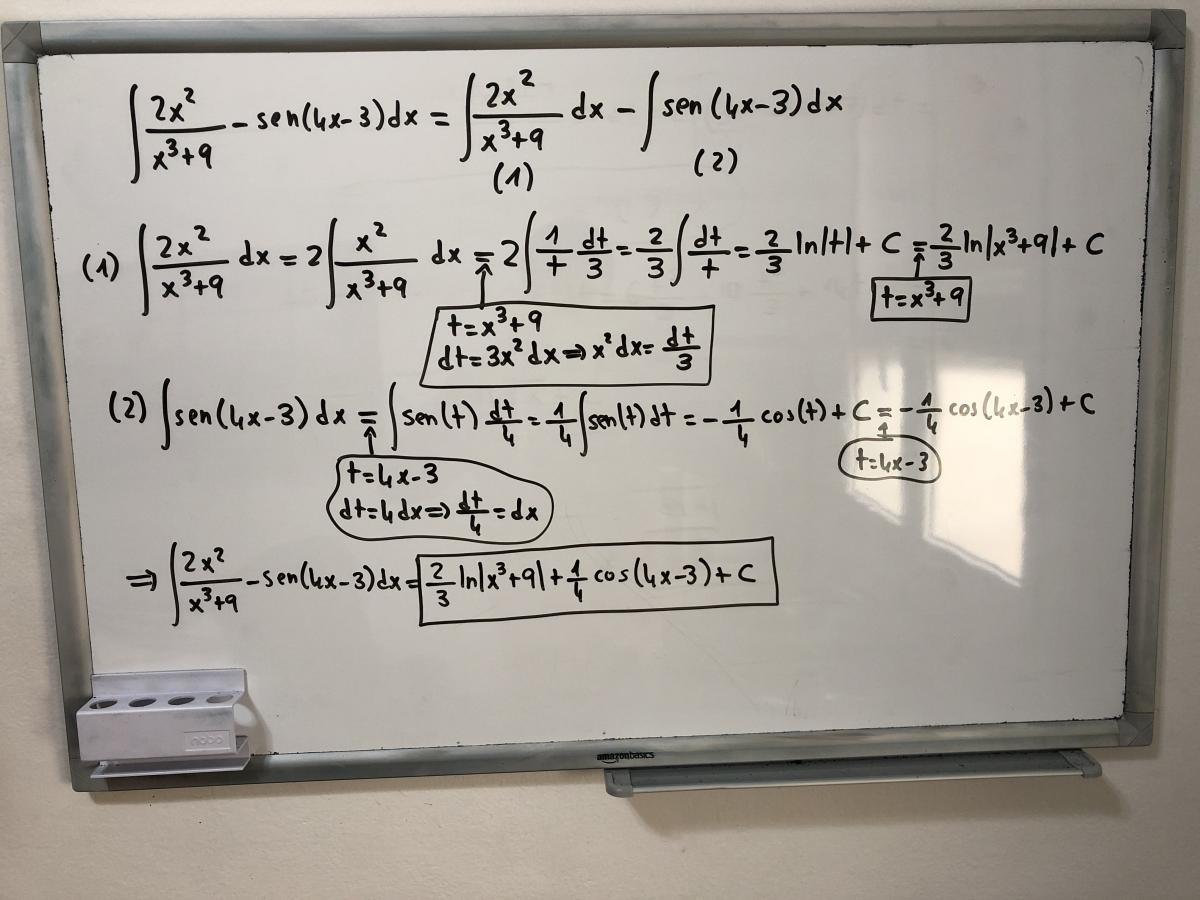 ∫ 2x²/(x³+9) - sen(4x-3)dx = ∫ 2x²/(x³+9) dx - ∫ sen(4x-3)dx
(1) (2)
(1) ∫ 2x²/(x³+9) dx = 2∫ x²/(x³+9) dx = 2∫ 1/t dt/3 = 2/3 ∫ dt/t = 2/3 ln|t| + C = 2/3 ln|x³+9| + C
t=x³+9
t=x³+9
dt=3x²dx ⇒ x²dx= dt/3
(2) ∫ sen(4x-3) dx = ∫ sen(t) dt/4 = 1/4 ∫ sen(t) dt = -1/4 cos(t) + C = -1/4 cos(4x-3) + C
t=4x-3
t=4x-3
dt=4dx ⇒ dt/4 = dx
⇒ ∫ 2x²/(x³+9) - sen(4x-3)dx = 2/3 ln|x³+9| + 1/4 cos(4x-3) + C
nobo
amazonbasics